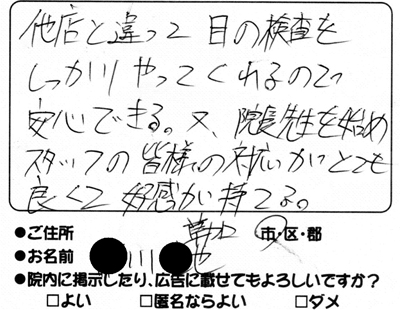 他店と違って目の検査を
しっかりやってくれるので
安心できる。又、院長先生を始め
スタッフの皆様の対応がとても
良くて好感が持てる。
●ご住所 市・区・郡
●お名前 川
●院内に掲示したり、広告に載せてもよろしいですか?
□よい □匿名ならよい □ダメ